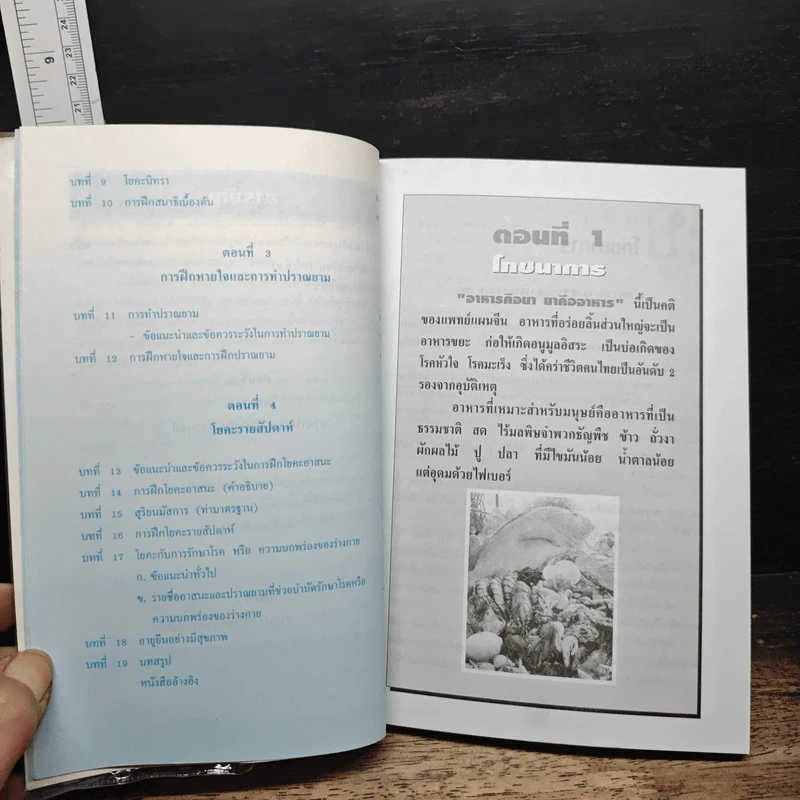 บทที่ 9 โยคะนิทรา
บทที่ 10 การฝึกสมาธิเบื้องต้น
ตอนที่ 3
การฝึกหายใจและการทำปราณยาม
บทที่ 11 การทำปราณยาม
- ข้อแนะนำและข้อควรระวังในการทำปราณยาม
บทที่ 12 การฝึกหายใจและการฝึกปราณยาม
ตอนที่ 4
โยคะรายสัปดาห์
บทที่ 13 ข้อแนะนำและข้อควรระวังในการฝึกโยคะอาสนะ
บทที่ 14 การฝึกโยคะอาสนะ (คำอธิบาย)
บทที่ 15 สุริยนมัสการ (ท่ามาตรฐาน)
บทที่ 16 การฝึกโยคะรายสัปดาห์
บทที่ 17 โยคะกับการรักษาโรค หรือ ความบกพร่องของร่างกาย
ก. ข้อแนะนำทั่วไป
ข. รายชื่ออาสนะและปราณยามที่ช่วยบำบัดรักษาโรคหรือ
ความบกพร่องของร่างกาย
บทที่ 18 อายุยืนอย่างมีสุขภาพ
บทที่ 19 บทสรุป
หนังสืออ้างอิง
ตอนที่ 1
โภชนาการ
"อาหารคือยา ยาคืออาหาร" นี้เป็นคติ
ของแพทย์แผนจีน อาหารที่อร่อยลิ้นส่วนใหญ่จะเป็น
อาหารขยะ ก่อให้เกิดอนุมูลอิสระ เป็นบ่อเกิดของ
โรคหัวใจ โรคมะเร็ง ซึ่งได้คร่าชีวิตคนไทยเป็นอันดับ 2
รองจากอุบัติเหตุ
อาหารที่เหมาะสำหรับมนุษย์คืออาหารที่เป็น
ธรรมชาติ สด ไร้มลพิษจำพวกธัญพืช ข้าว ถั่วงา
ผักผลไม้ ปู ปลา ที่มีไขมันน้อย น้ำตาลน้อย
แต่อุดมด้วยไฟเบอร์
9
24
23
22
21